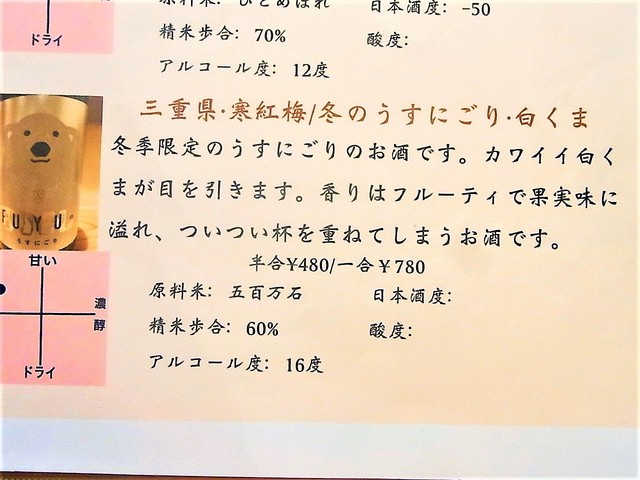 原料米: ひとめぼれ
日本酒度: -50
ドライ
精米歩合: 70%
酸度:
アルコール度: 12度
三重県・寒紅梅/冬のうすにごり・白くま
冬季限定のうすにごりのお酒です。カワイイ白く
まが目を引きます。香りはフルーティで果実味に
溢れ、ついつい杯を重ねてしまうお酒です。
FUYU
うすにごり
半合¥480/一合¥780
甘い
濃醇
ドライ
原料米: 五百万石
日本酒度:
精米歩合: 60%
酸度:
アルコール度: 16度